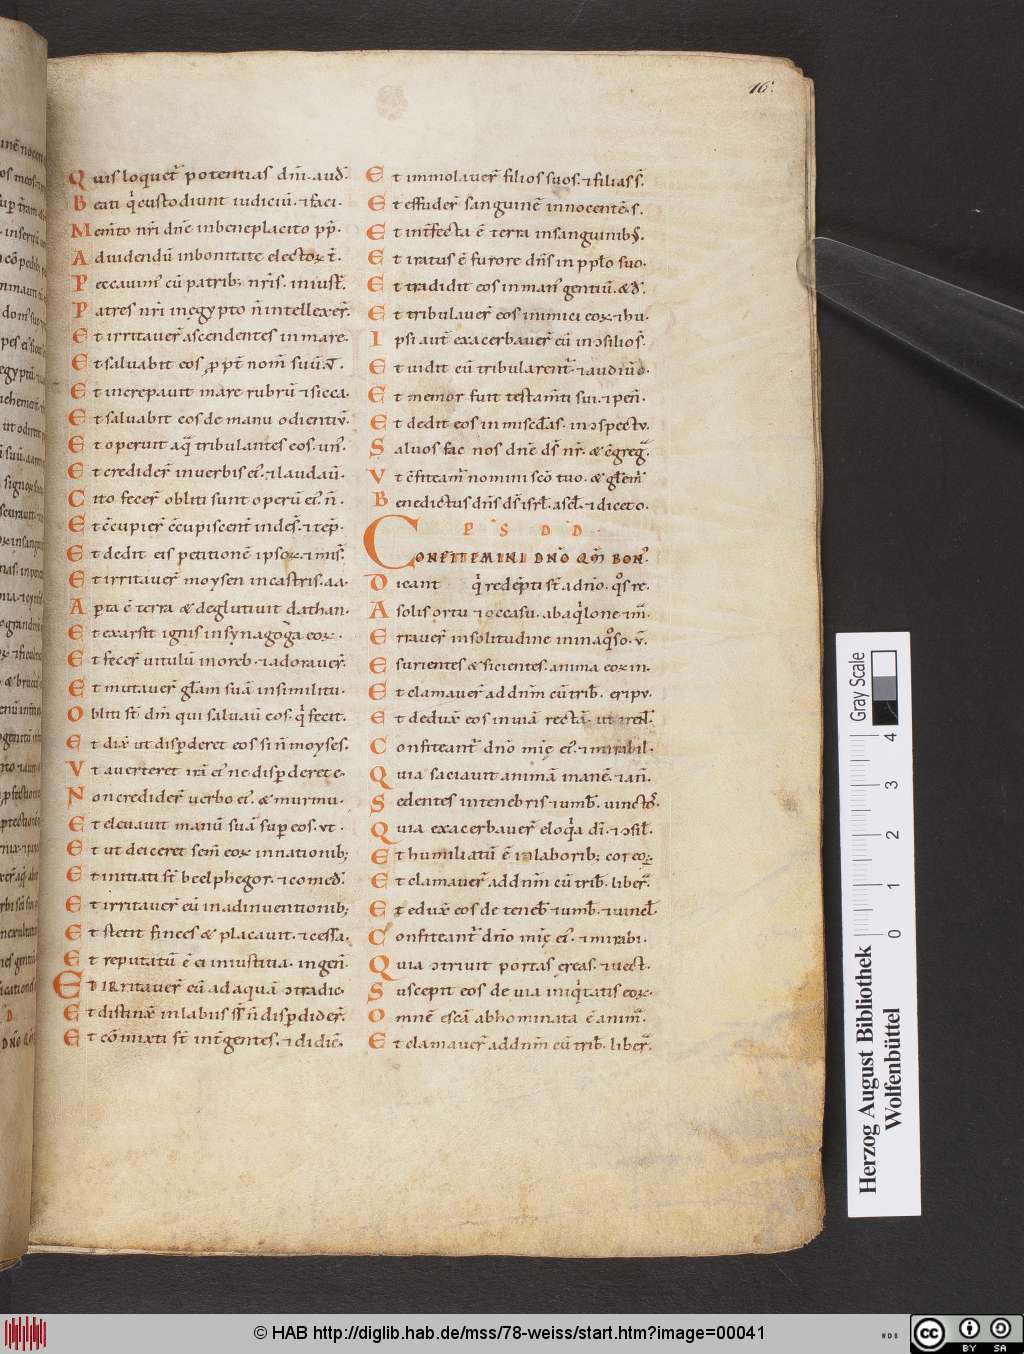 16.
Quis loquet̄ potentias dn̄i. aud̄.
Beati q̄ custodiunt iudiciū. ⁊ faci.
Mem̄to nr̄i dn̄e inbeneplacito pp̄.
Aduidendū inbonitate electoꝝ t̄.
Peccauim᾽ cū patrib; nr̄is. iniust̄.
Patres nr̄i inegypto n̄ intellexer̄.
Et irritauer̄ ascendentes in mare.
Et saluabit eos ꝓpt̄ nom̄ suū. ⁊
Et increpauit mare rubrū ⁊ sicca.
Et saluabit eos de manu odientiū.
Et operuit aq̄ tribulantes eos. un᾽.
Et credider̄ inuerbis ei᾽. ⁊ laudaū.
Cito fecer̄ obliti sunt operū ei᾽. n̄.
Et c̄cupier̄ c̄cupiscent̄ indes̄. ⁊ tep̄.
Et dedit eis petitionē ipsoꝝ. ⁊ mis̄.
Et irritauer̄ moysen incastris. aa.
Apta ē terra & deglutiuit dathan.
Et exarsit ignis insynagoga eoꝝ.
Et fecer̄ uitulū inoreb. ⁊ adorauer̄.
Et mutauer̄ gl̄am suā insimilitu.
Obliti st̄ dm̄ qui saluauū eos. q̄ fecit.
Et dix̄ ut disꝑderet eos si n̄ moyses.
Vt auerteret irā ei᾽ ne disꝑderet e.
Non credider̄ uerbo ei᾽. & murmu.
Et eleuauit manū suā suꝑ eos. vt.
Et ut deiceret sem̄ eoꝝ innationib;
Et initiati st̄ beelphegor. ⁊ comed̄.
Et irritauer̄ eū inadinuentionib;
Et stetit finees & placauit. ⁊ cessa.
Et reputatū ē ei iniustitia. ingen̄.
Et irritauer̄ eū adaquā ↄtradic.
Et distinx̄ inlabiis s̄ n̄ disꝑdider̄.
Et cōmixti st̄ int̄ gentes. ⁊ didic̄.
Et immolauer̄ filios suos. ⁊ filias s̄.
Et effuder̄ sanguinē innocentē. s.
Et int̄fecta ē terra insanguinib;
Et iratus ē furore dn̄s in pp̄lo suo.
Et tradidit eos inman᾽ gentiū. & d̄.
Et tribulauer̄ eos inimici eoꝝ. ⁊ hu.
Ipsi aut̄ exacerbauer̄ eū inↄsilio s̄.
Et uidit cū tribularent̄. ⁊ audiuid.
Et memor fuit testam̄ti sui. ⁊ pen̄.
Et dedit eos in misc̄das. inↄspectu.
Saluos fac nos dn̄e ds̄ nr̄. & c̄greḡ.
Vt c̄fiteam̄ nomini sc̄o tuo. & gl̄em᾽
Benedictus dn̄s ds̄ isrl̄. ascl̄. ⁊ diceto.
P S D D
Confitemini dn̄o qm̄ bon᾽.
Dicant q̄ redēpti st̄ adn̄o. q̊s re.
Asolis ortu ⁊ occasu. abaq̄lone ⁊ m̄.
Errauer̄ insolitudine in inaq̊so. v̄.
Esurientes & sicientes. anima eoꝝ in.
Et clamauer̄ addn̄m cū trib̄. eripu.
Et dedux̄ eos inuiā rectā.
Confiteant̄ dn̄o mīe ei᾽. ⁊ mirabil.
Quia saciauit animā inanē. ⁊ an̄.
Sedentes intenebris ⁊ umb̄. uinctos᾽.
Quia exacerbauer̄ eloq̄a dī. ⁊ ↄsil̄.
Et humiliatū ē inlaborib; cor eoꝝ.
Et clamauer̄ addn̄m cū trib̄. liber̄.
Et edux̄ eos de teneb̄ ⁊ umb̄. ⁊ uincl̄.
Confiteant̄ dn̄o mīe ei᾽. ⁊ mirabi.
Quia ↄtriuit portas ereas. ⁊ uect.
Suscepit eos de uia iniq̄tatis eoꝝ.
Omnē escā abhominata ē anim̄.
Et clamauer̄ addn̄m cū trib̄. liber̄.
Gray Scale
0 1 2 3 4
Herzog August Bibliothek
Wolfenbüttel
© HAB http://diglib.hab.de/mss/78-weiss/start.htm?image=00041
cc
BY SA